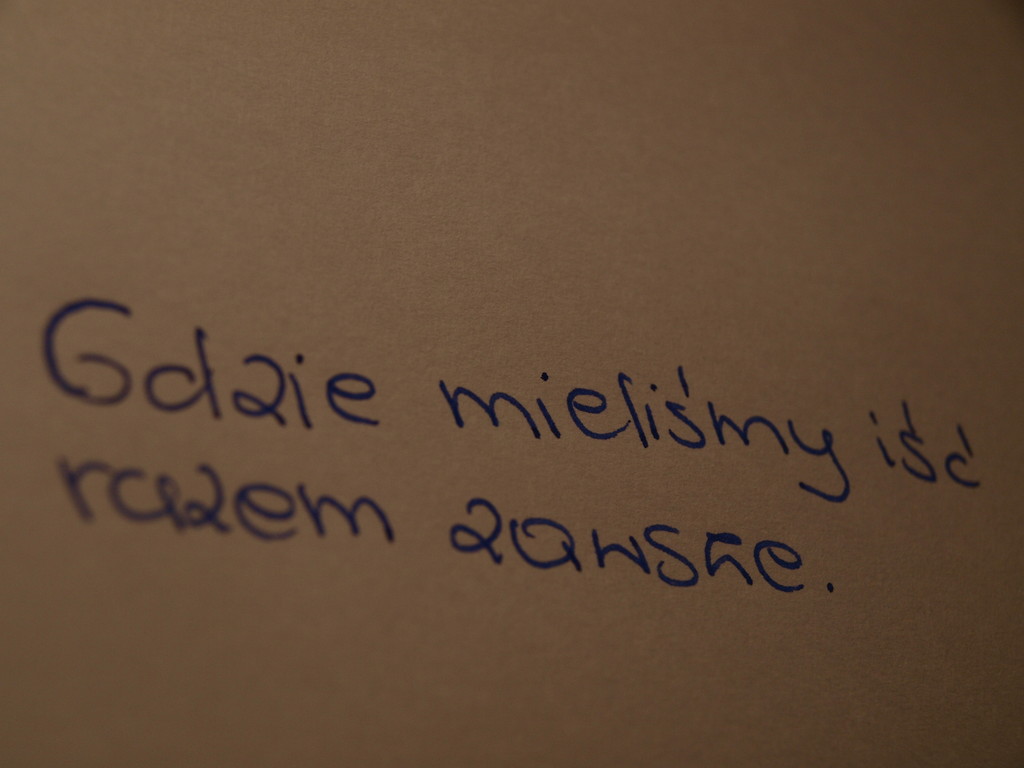 Gdzie mieliśmy iść
razem zawsze.